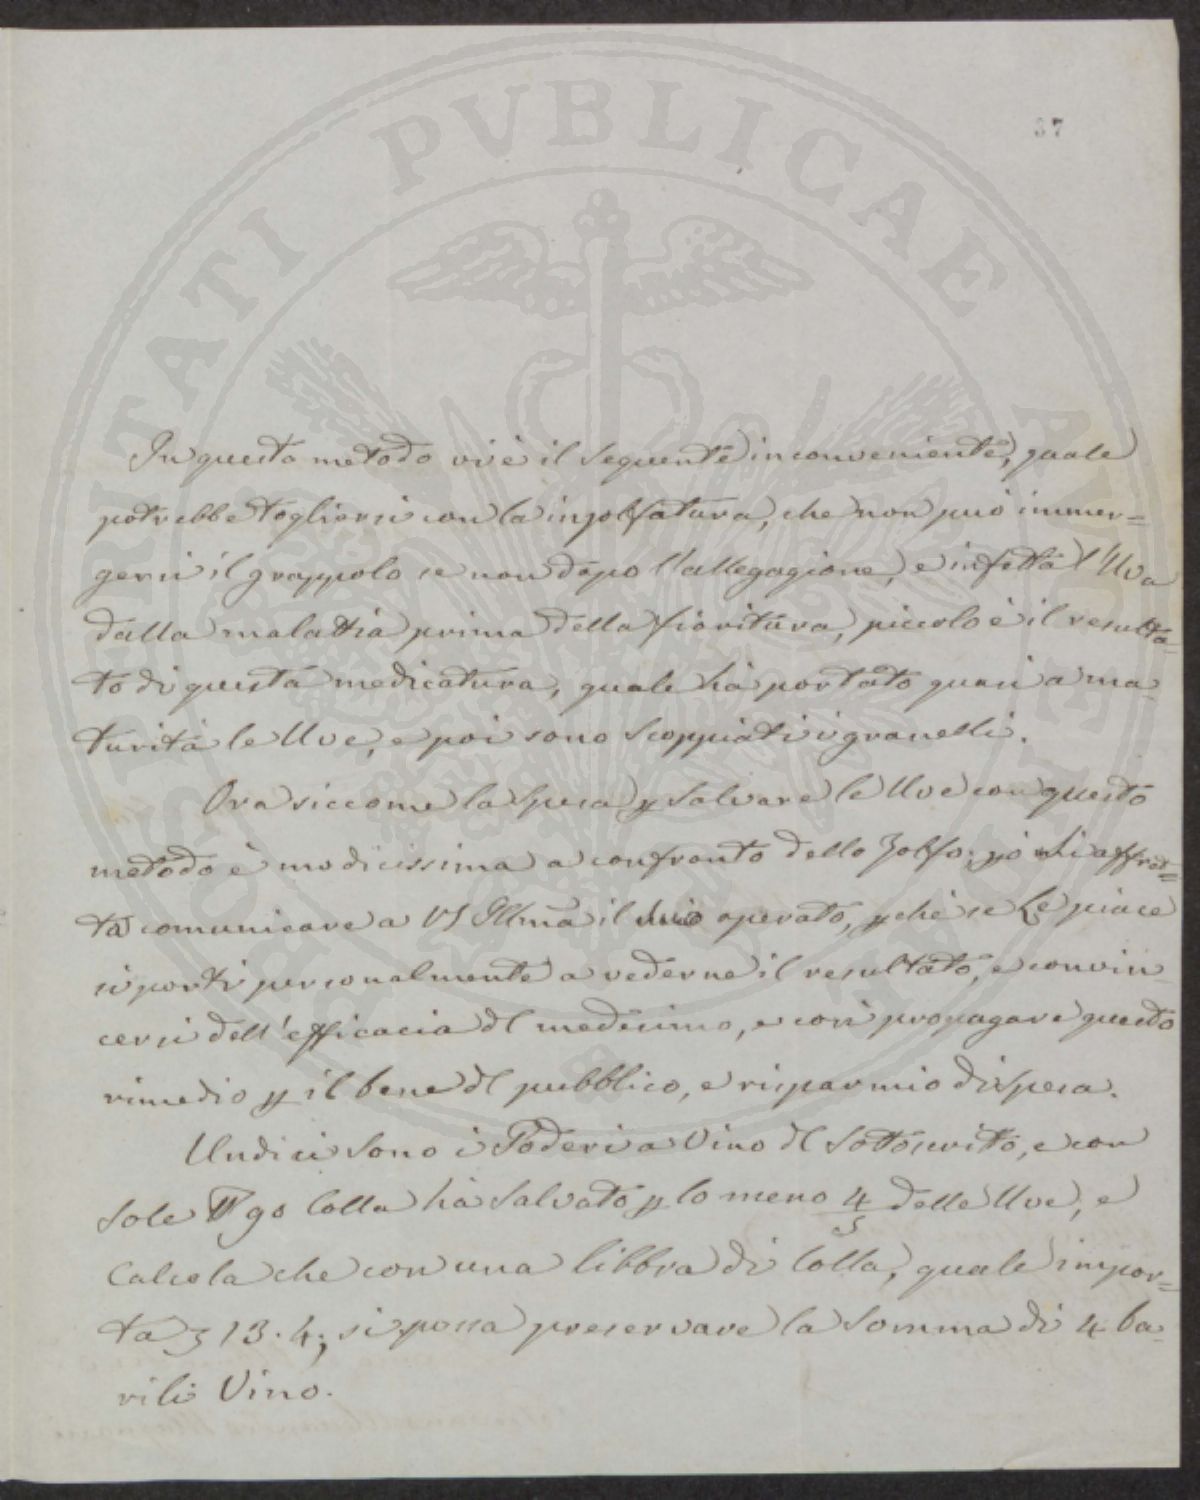 37
In questo metodo vi è il seguente inconveniente, quale
potrebbe togliersi con la insolfatura, che non può immer=
gersi il grappolo se non dopo l'allegagione, e infetta l'Uva
dalla malattia prima della fioritura, piccolo è il resulta=
to di questa medicatura, quale hà portato quasi a ma-
turità le Uve, e poi sono scoppiati i granelli.
Ora siccome la spesa p salvare le Uve con questo
metodo è modicissima a confronto dello Zolfo; si affret=
ta comunicare a VS Illma il suo operato, pchè se Le piace
si porti personalmente a vederne il resultato, e convin-
cersi dell'efficacia del medesimo, e così propagare questo
rimedio p il bene del pubblico, e risparmio di spesa.
Undici sono i Poderi a Vino del sottoscritto, e con
sole 90 Colla hà salvato p lo meno 4/5 delle Uve, e
Calcola che con una libbra di Colla, quale impor=
ta 13.4; si possa preservare la somma di 4 ba-
rili Vino.
PROSPERITATI PVBLICAE AVGENDAE